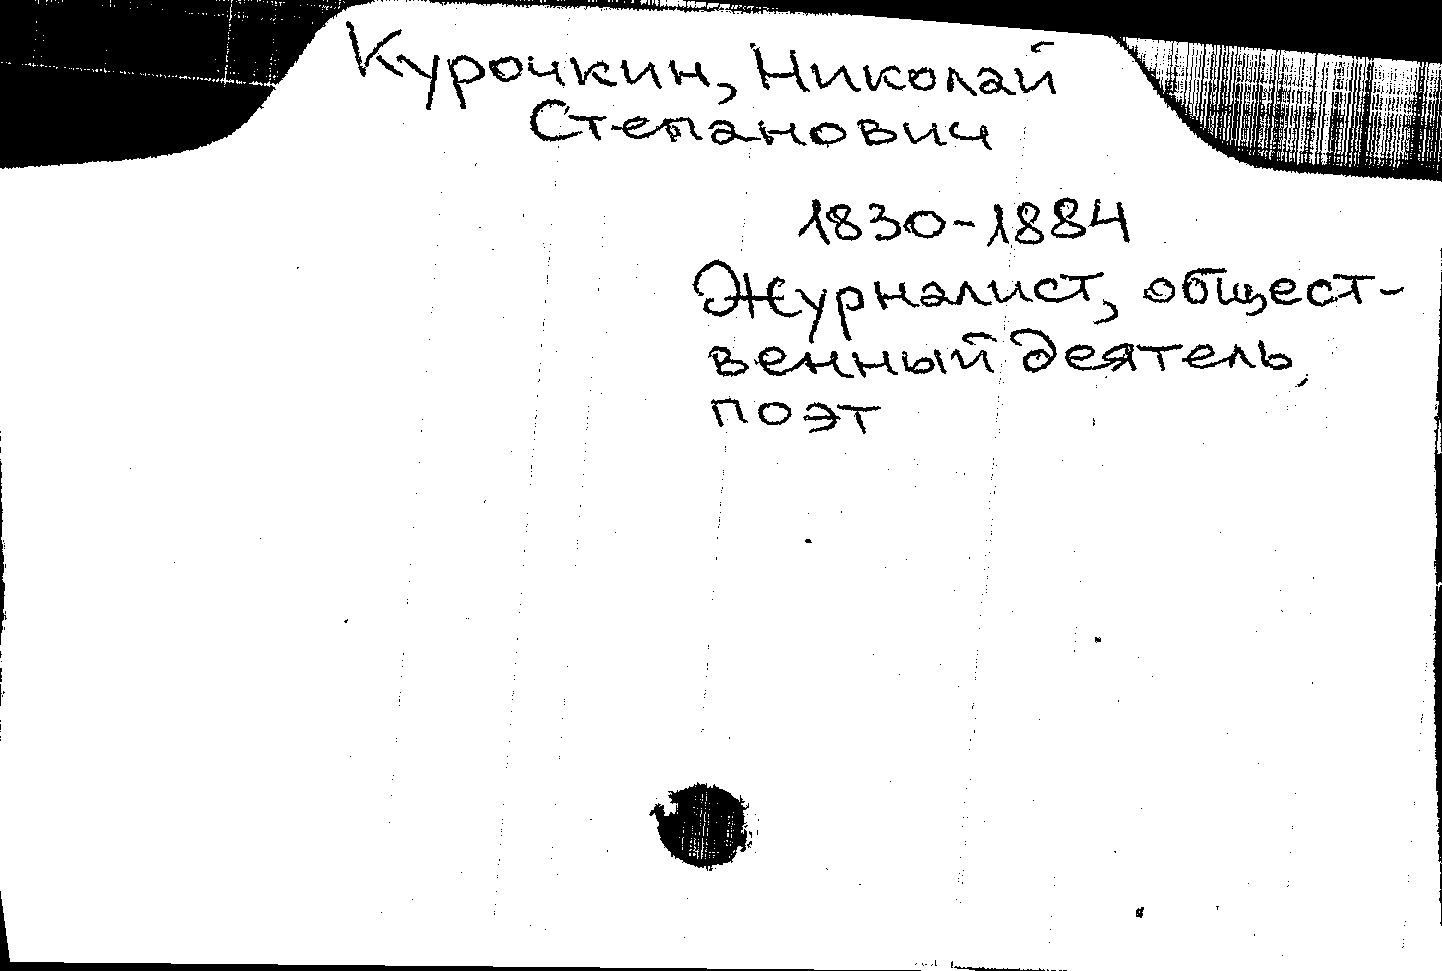 Курочкин, Николай
Степанович
1830-1884
Журналист, общест-
венный деятель,
поэт